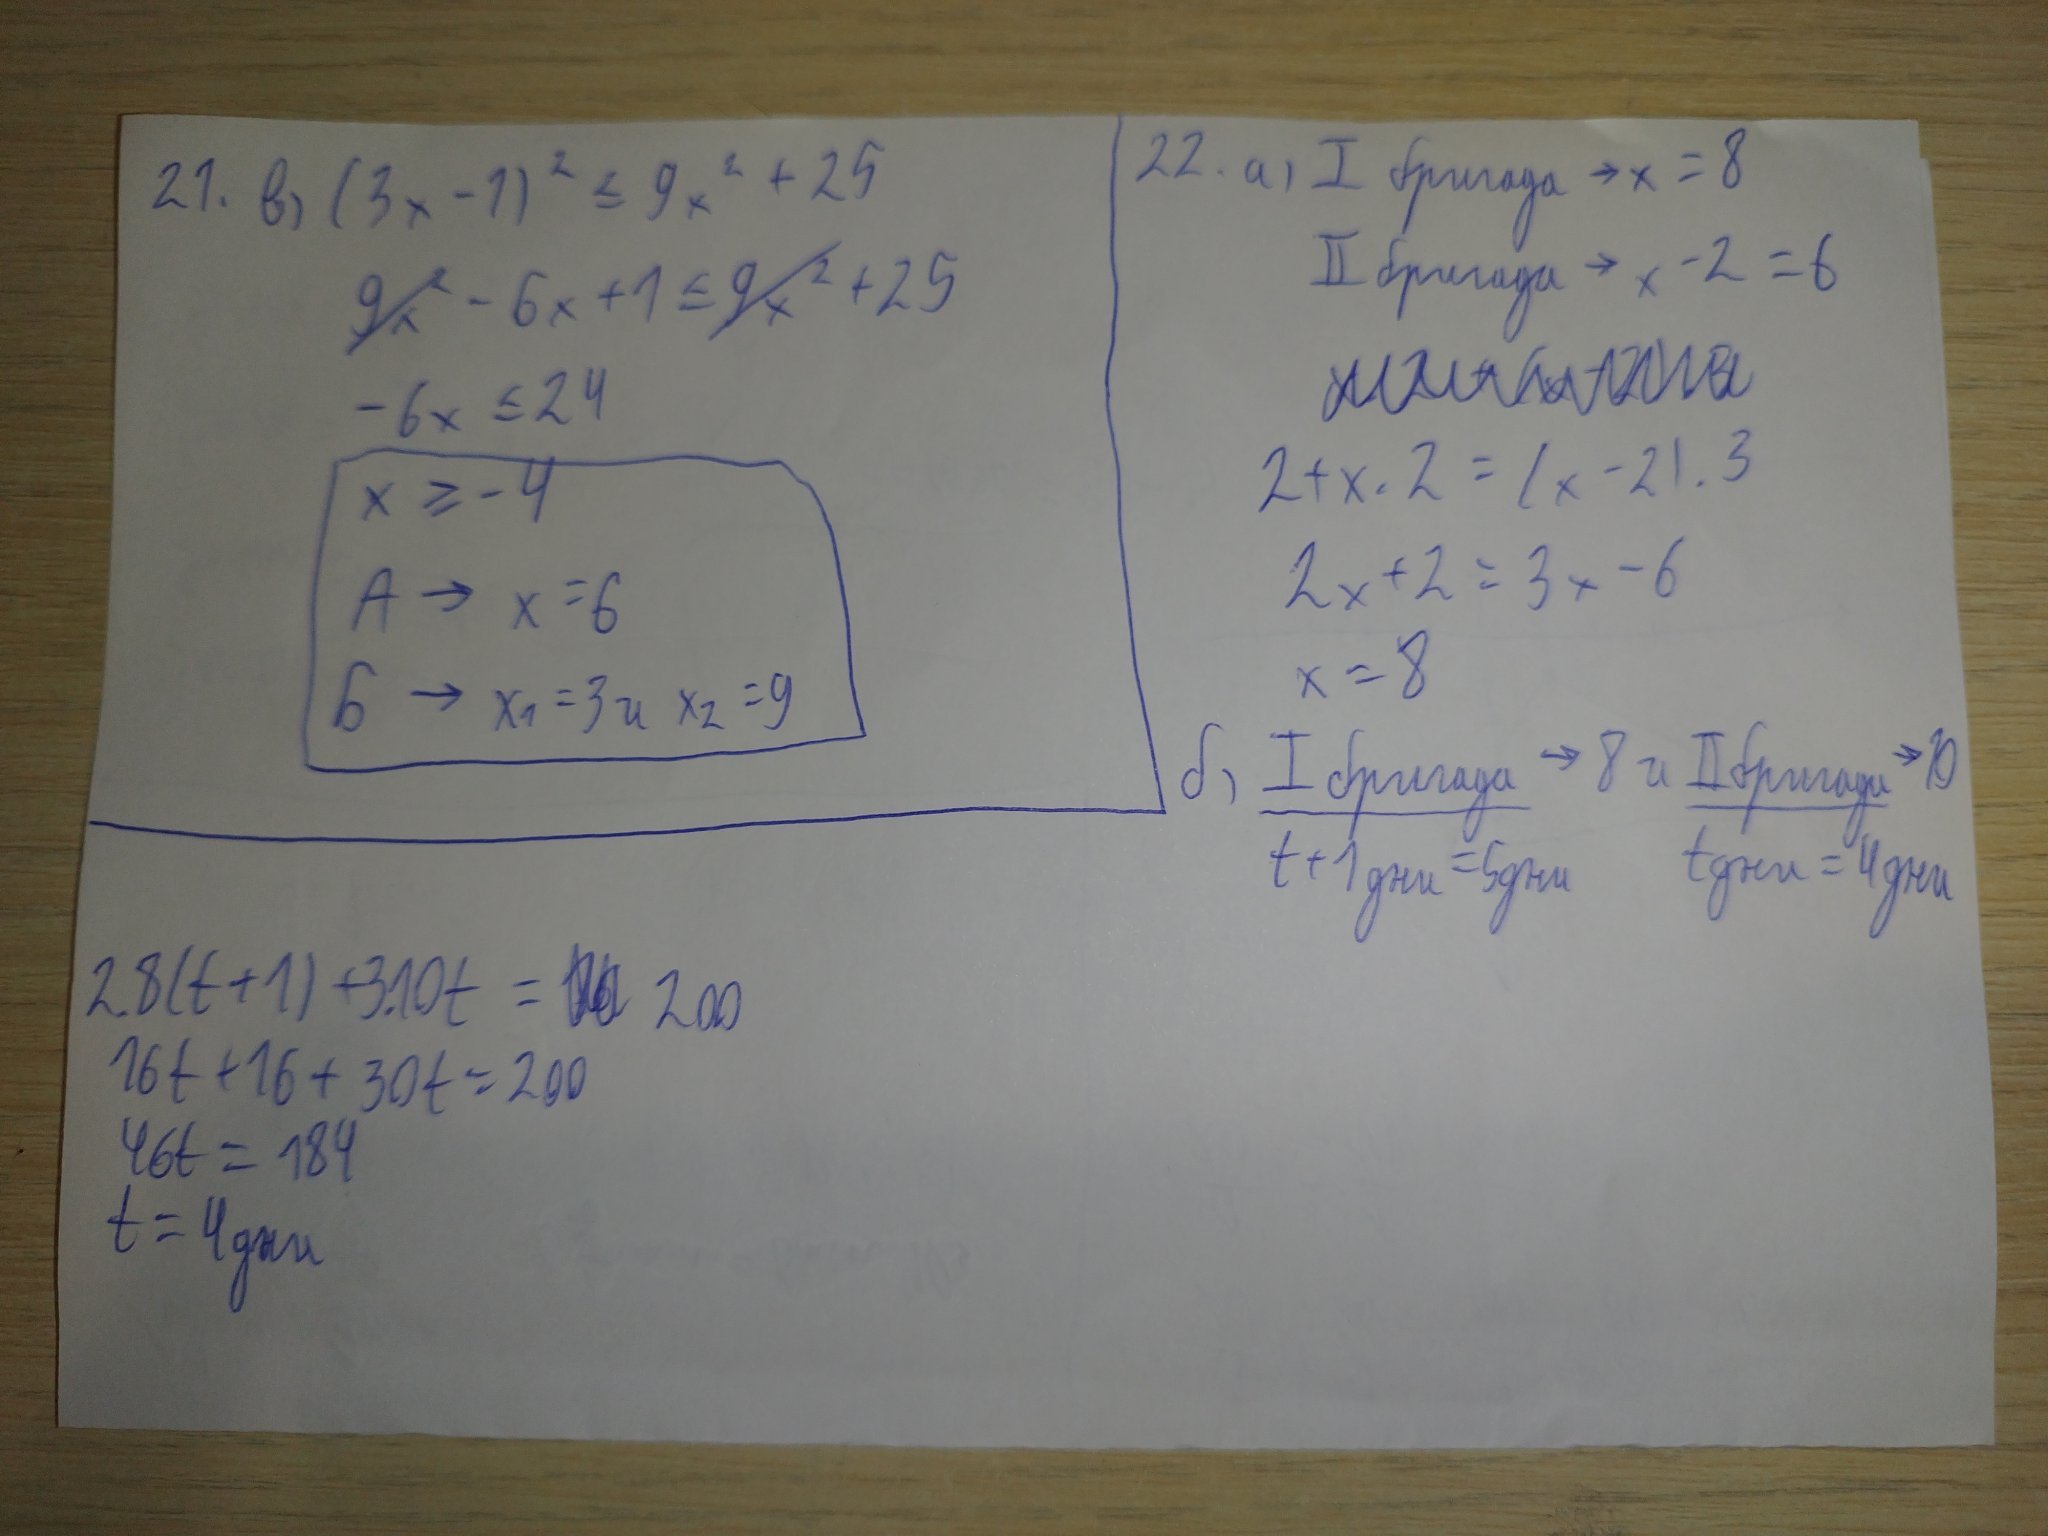 21. в) (3x - 1)² ≤ 9x² + 25
9x² - 6x + 1 ≤ 9x² + 25
-6x ≤ 24
x ≥ -4
А → x = 6
Б → x₁ = 3 и x₂ = 9
22. а) I бригада → x = 8
II бригада → x - 2 = 6
2 + x . 2 = (x - 2) . 3
2x + 2 = 3x - 6
x = 8
б) I бригада → 8 и II бригади → 10
t + 1 дни = 5 дни t дни = 4 дни
2.8(t + 1) + 3.10t = 200
16t + 16 + 30t = 200
46t = 184
t = 4 дни